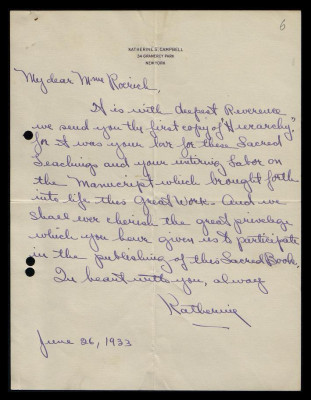 6
KATHERINE S. CAMPBELL
34 GRAMERCY PARK
NEW YORK
My dear Mme Roerich.
It is with deepest Reverence
we send you the first copy of "Hierarchy."
for it was your love for these Sacred
Teachings and your untiring labor on
the Manuscript which brought forth
into life this Great Work. And we
shall ever cherish the great privilege
which you have given us to participate
in the publishing of this Sacred Book.
In heart with you, always
Katherine
June 26, 1933